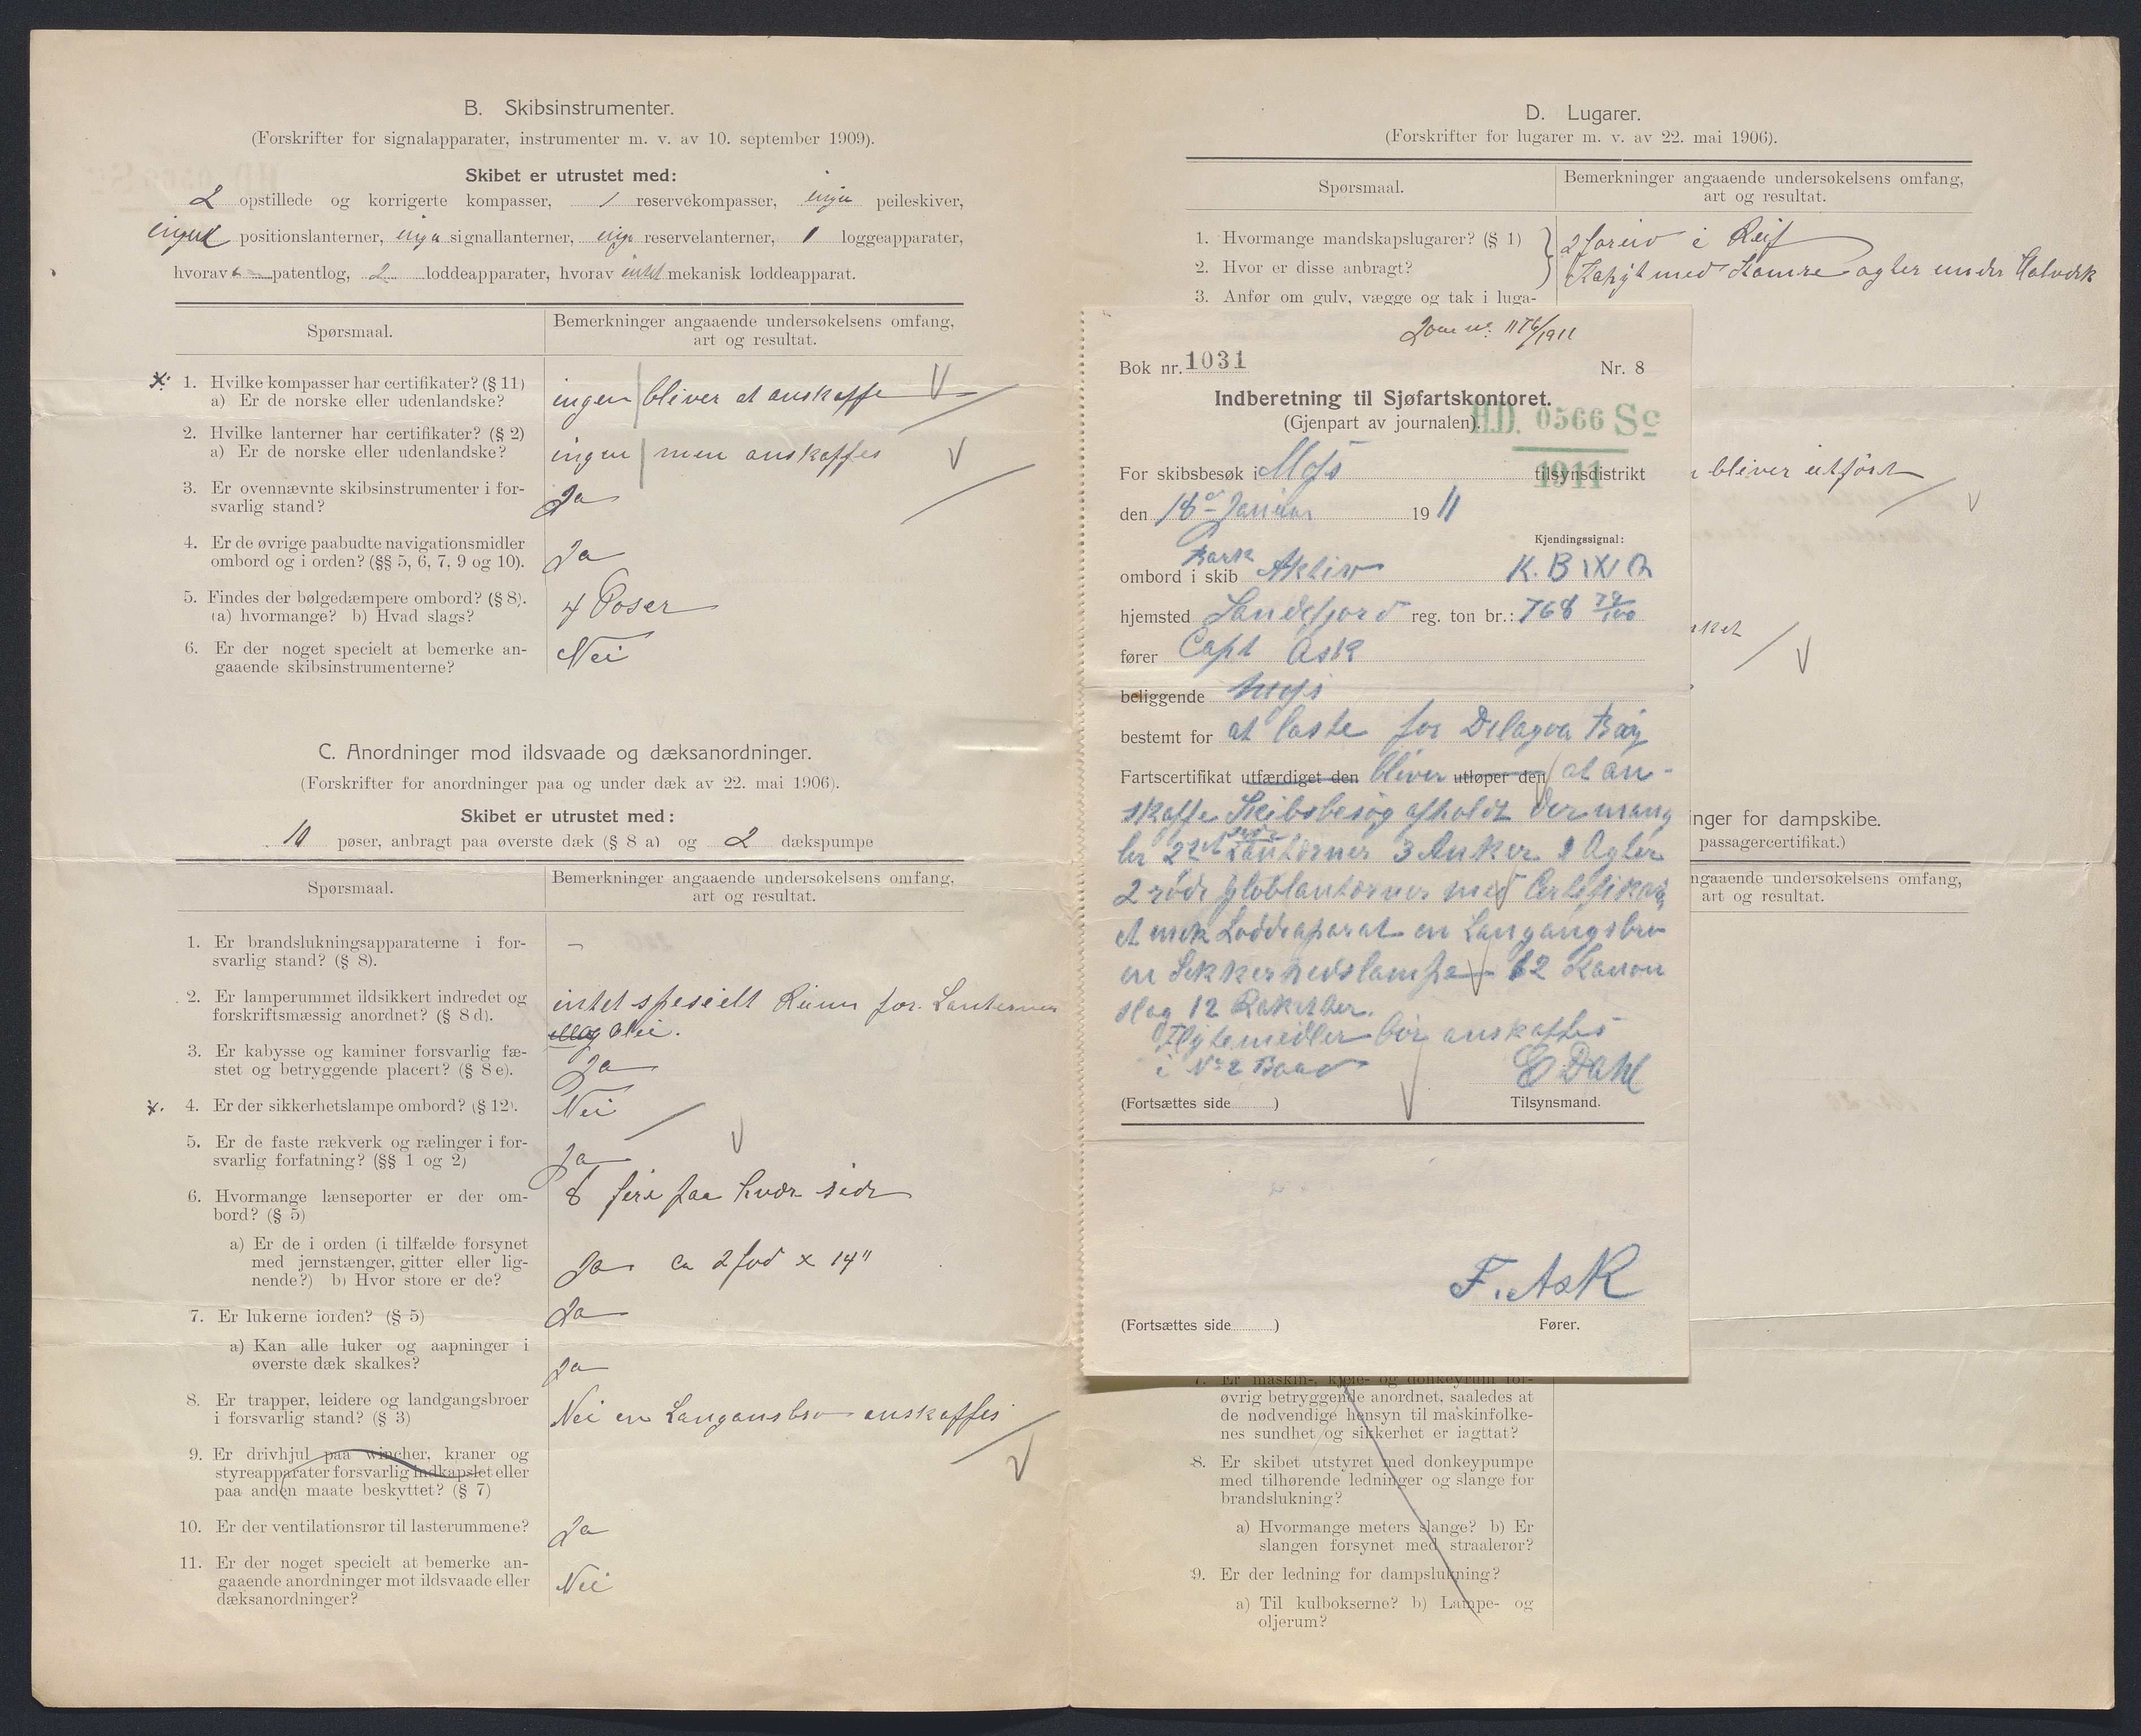 B. Skibsinstrumenter.
(Forskrifter for signalapparater, instrumenter m. v. av 10. september 1909).
Skibet er utrustet med:
2 opstillede og korrigerte kompasser, 1 reservekompasser, ingen peileskiver,
ingen positionslanterner, ingen signallanterner, ingen reservelanterner, 1 loggeapparater,
hvorav patentlog, 2 loddeapparater, hvorav intet mekanisk loddeapparat.
Spørsmaal.
Bemerkninger angaaende undersøkelsens omfang,
art og resultat.
1. Hvilke kompasser har certifikater? (§ 11)
a) Er de norske eller udenlandske?
ingen bliver at anskaffe
2. Hvilke lanterner har certifikater? (§ 2)
a) Er de norske eller udenlandske?
ingen men anskaffes
3. Er ovennævnte skibsinstrumenter i for-
svarlig stand?
Ja
4. Er de øvrige paabudte navigationsmidler
ombord og i orden? (§§ 5, 6, 7, 9 og 10).
Ja
5. Findes der bølgedæmpere ombord? (§ 8).
(a) hvormange? b) Hvad slags?
4 Poser
6. Er der noget specielt at bemerke an-
gaaende skibsinstrumenterne?
Nei
C. Anordninger mod ildsvaade og dæksanordninger.
(Forskrifter for anordninger paa og under dæk av 22. mai 1906).
Skibet er utrustet med:
10 pøser, anbragt paa øverste dæk (§ 8 a) og 2 dækspumpe
Spørsmaal.
Bemerkninger angaaende undersøkelsens omfang,
art og resultat.
1. Er brandslukningsapparaterne i for-
svarlig stand? (§ 8).
–
2. Er lamperummet ildsikkert indredet og
forskriftsmæssig anordnet? (§ 8 d).
intet spesielt Rum for Lanterner
Olie.
3. Er kabysse og kaminer forsvarlig fæ-
stet og betryggende placert? (§ 8 e).
Ja
4. Er der sikkerhetslampe ombord? (§ 12).
Nei
5. Er de faste rækverk og rælinger i for-
svarlig forfatning? (§§ 1 og 2)
Ja
6. Hvormange lænseporter er der om-
bord? (§ 5)
8 fire paa hver side
a) Er de i orden (i tilfælde forsynet
med jernstænger, gitter eller lig-
nende?) b) Hvor store er de?
Ja ca 2 fod x 14"
7. Er lukerne iorden? (§ 5)
Ja
a) Kan alle luker og aapninger i
øverste dæk skalkes?
Ja
8. Er trapper, leidere og landgangsbroer
i forsvarlig stand? (§ 3)
Nei en Langansbro anskaffes
9. Er drivhjul paa wincher, kraner og
styreapparater forsvarlig indkapslet eller
paa anden maate beskyttet? (§ 7)
10. Er der ventilationsrør til lasterummene?
Ja
11. Er der noget specielt at bemerke an-
gaaende anordninger mot ildsvaade eller
dæksanordninger?
Nei
D. Lugarer.
(Forskrifter for lugarer m. v. av 22. mai 1906).
Spørsmaal.
Bemerkninger angaaende undersøkelsens omfang,
art og resultat.
1. Hvormange mandskapslugarer? (§ 1)
2. Hvor er disse anbragt?
2 forerv i Reif
Kahyt med Kamre agter under Halvdæk
3. Anfør om gulv, vægge og tak i luga-
bliver utført
Jour no. 1176/1911
Bok nr. 1031
Nr. 8
Indberetning til Sjøfartskontoret.
(Gjenpart av journalen).
H.D. 0566 Sc
1911
For skibsbesøk i Moss tilsynsdistrikt
den 18de Januar 1911
Kjendingssignal:
Bark
ombord i skib Aktiv
hjemsted Sandefjord reg. ton br.: 768 79/100
fører Capt Ask
beliggende Moss
bestemt for at laste for Delagoa Bay
Fartscertifikat utfærdiget den bliver utløper den at an-
skaffe Skibsbesøg afholdt Der mang
ler 2 set side Lanterner 3 Anker 1 Agter
2 røde globlanterner med Certifikat,
et mek Loddeaparat en Langangsbro
en Sekkerhedslampe 12 Kanon
slag 12 Raketter.
Flytemidler bør anskaffes
i No 2 Baad
E Dahl
(Fortsættes side )
Tilsynsmand.
F. Ask
(Fortsættes side )
Fører.
inger for dampskibe.
passagercertifikat.)
ngaaende undersøkelsens omfang,
art og resultat.
7. Er maskin-, kjele- og donkeyrum for-
øvrig betryggende anordnet, saaledes at
de nødvendige hensyn til maskinfolke-
nes sundhet og sikkerhet er iagttat?
8. Er skibet utstyret med donkeypumpe
med tilhørende ledninger og slange for
brandslukning?
a) Hvormange meters slange? b) Er
slangen forsynet med straalerør?
9. Er der ledning for dampslukning?
a) Til kulbokserne? b) Lampe- og
oljerum?